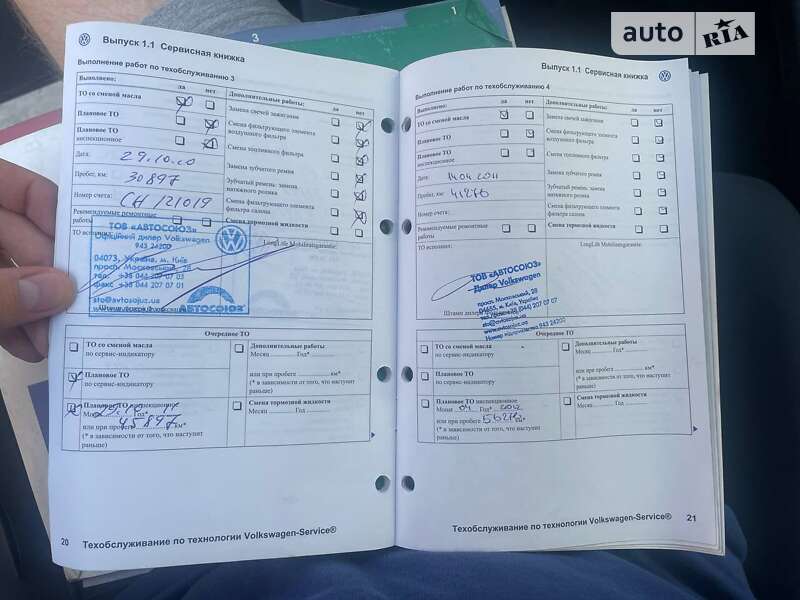 3
1
auto RIA
Выпуск 1.1 Сервисная книжка
Выполнение работ по техобслуживанию 3
Выполнено:
да нет
Дополнительные работы:
да нет
ТО со сменой масла
Замена свечей зажигания
Плановое ТО
Смена фильтрующего элемента
воздушного фильтра
Плановое ТО
инспекционное
Смена топливного фильтра
Дата:
29.10.10
Замена зубчатого ремня
Пробег, км:
30897
Зубчатый ремень: замена
натяжного ролика
Номер счета:
СН 121019
Смена фильтрующего элемента
фильтра салона
Рекомендуемые ремонтные
работы
Смена тормозной жидкости
ТО исполнил:
LongLife Mobilitätsgarantie:
ТОВ «АВТОСОЮЗ»
Офіційний дилер Volkswagen
943 24200
04073, Україна, м. Київ
просп. Московський, 28
тел. +38 044 207 07 03
факс +38 044 207 07 01
sto@avtosojuz.ua
АВТОСОЮЗ
Очередное ТО
ТО со сменой масла
по сервис-индикатору
Дополнительные работы
Месяц Год*
Плановое ТО
по сервис-индикатору
или при пробеге км*
(* в зависимости от того, что наступит
раньше)
Плановое ТО инспекционное
Месяц Год*
или при пробеге 45897 км*
(* в зависимости от того, что наступит
раньше)
Смена тормозной жидкости
Месяц Год
20 Техобслуживание по технологии Volkswagen-Service®
Выпуск 1.1 Сервисная книжка
Выполнение работ по техобслуживанию 4
Выполнено:
да нет
Дополнительные работы:
да нет
ТО со сменой масла
Замена свечей зажигания
Плановое ТО
Смена фильтрующего элемента
воздушного фильтра
Плановое ТО
инспекционное
Смена топливного фильтра
Дата:
14.04.2011
Замена зубчатого ремня
Пробег, км:
41270
Зубчатый ремень: замена
натяжного ролика
Номер счета:
Смена фильтрующего элемента
фильтра салона
Рекомендуемые ремонтные
работы
Смена тормозной жидкости
ТО исполнил:
LongLife Mobilitätsgarantie:
ТОВ «АВТОСОЮЗ»
Дилер Volkswagen
просп. Московський, 28
04655, м. Київ, Україна
(044) 207 07 07
sto@avtosojuz.ua
www.avtosojuz.ua
943 24200
Очередное ТО
ТО со сменой масла
по сервис-индикатору
Дополнительные работы
Месяц Год*
Плановое ТО
по сервис-индикатору
или при пробеге км*
(* в зависимости от того, что наступит
раньше)
Плановое ТО инспекционное
Месяц 04 Год* 2012
или при пробеге 56270 км*
(* в зависимости от того, что наступит
раньше)
Смена тормозной жидкости
Месяц Год
Техобслуживание по технологии Volkswagen-Service® 21